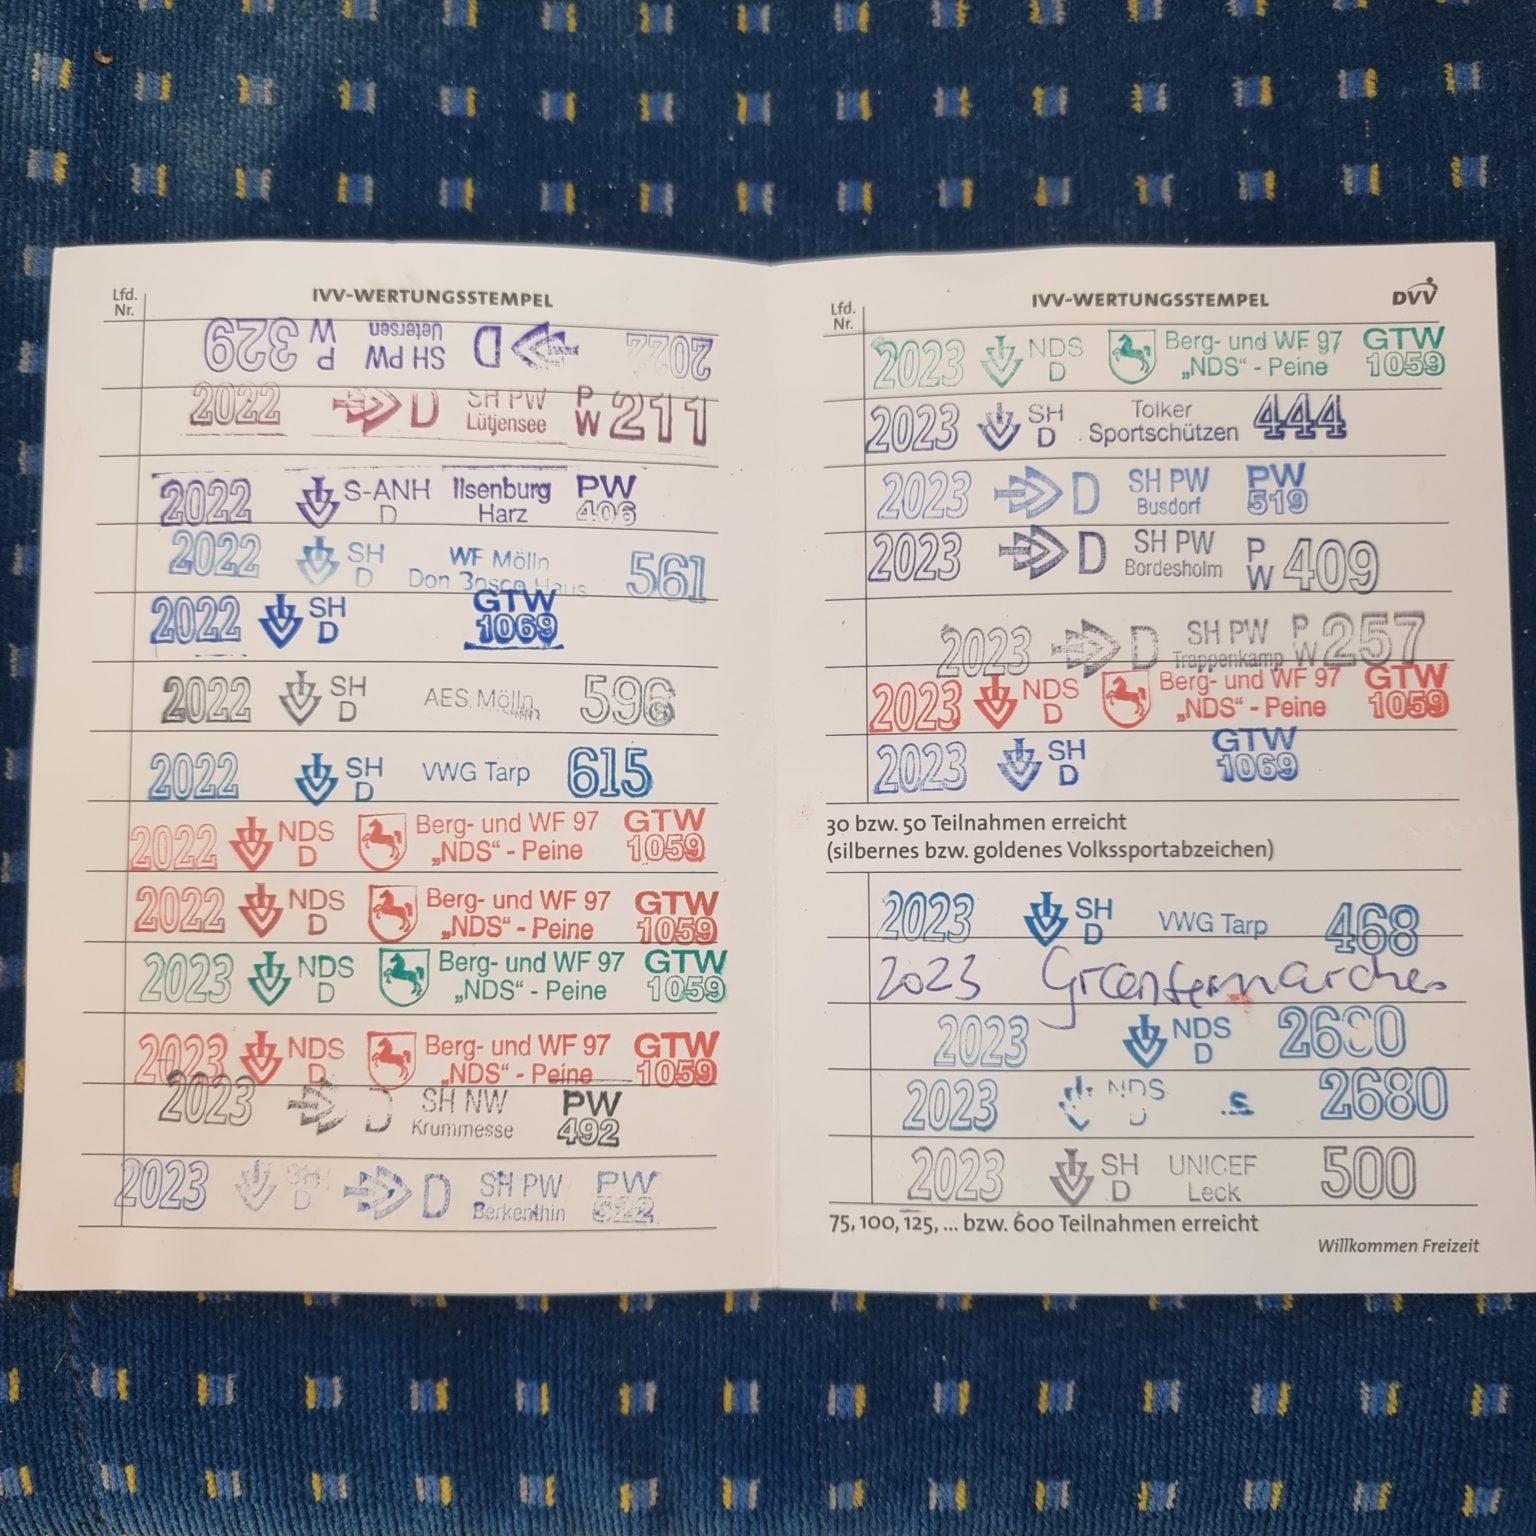 Lfd. Nr. IVV-WERTUNGSSTEMPEL
2022 D SH PW Uetersen PW 329
2022 D SH PW Lütjensee PW 211
2022 S-ANH D Ilsenburg Harz PW 406
2022 SH D WF Mölln Don Bosco Haus 561
2022 SH D GTW 1069
2022 SH D AES Mölln 596
2022 SH D VWG Tarp 615
2022 NDS D Berg- und WF 97 „NDS“ - Peine GTW 1059
2022 NDS D Berg- und WF 97 „NDS“ - Peine GTW 1059
2023 NDS D Berg- und WF 97 „NDS“ - Peine GTW 1059
2023 NDS D Berg- und WF 97 „NDS“ - Peine GTW 1059
2023 D SH NW Krummesse PW 492
2023 SH D D SH PW Berkenthin PW 522
Lfd. Nr. IVV-WERTUNGSSTEMPEL DVV
2023 NDS D Berg- und WF 97 „NDS“ - Peine GTW 1059
2023 SH D Tolker Sportschützen 444
2023 D SH PW Busdorf PW 519
2023 D SH PW Bordesholm PW 409
2023 D SH PW Trappenkamp PW 257
2023 NDS D Berg- und WF 97 „NDS“ - Peine GTW 1059
2023 SH D GTW 1069
30 bzw. 50 Teilnahmen erreicht
(silbernes bzw. goldenes Volkssportabzeichen)
2023 SH D VWG Tarp 468
2023
2023 NDS D 2680
2023 NDS D 2680
2023 SH D UNICEF Leck 500
75, 100, 125, ... bzw. 600 Teilnahmen erreicht
Willkommen Freizeit